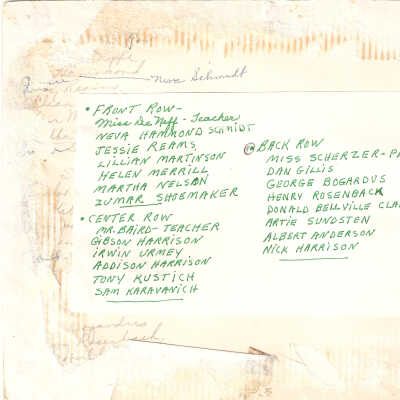 Neva Schmidt
• FRONT ROW-
Miss DeNeff - Teacher
NEVA HAMMOND SCHMIDT
JESSIE REAMS
LILLIAN MARTINSON
HELEN MERRILL
MARTHA NELSAN
ZUMAR SHOEMAKER
• CENTER ROW
MR. BAIRD-TEACHER
GIBSON HARRISON
IRWIN URMEY
ADDISON HARRISON
TONY KUSTICH
SAM KARAVANICH
• BACK ROW
MISS SCHERZER-PA
DAN GILLIS
GEORGE BOGARDUS
HENRY ROSENBACK
DONALD BELLVILLE CLA
ARTIE SUNDSTEN
ALBERT ANDERSON
NICK HARRISON